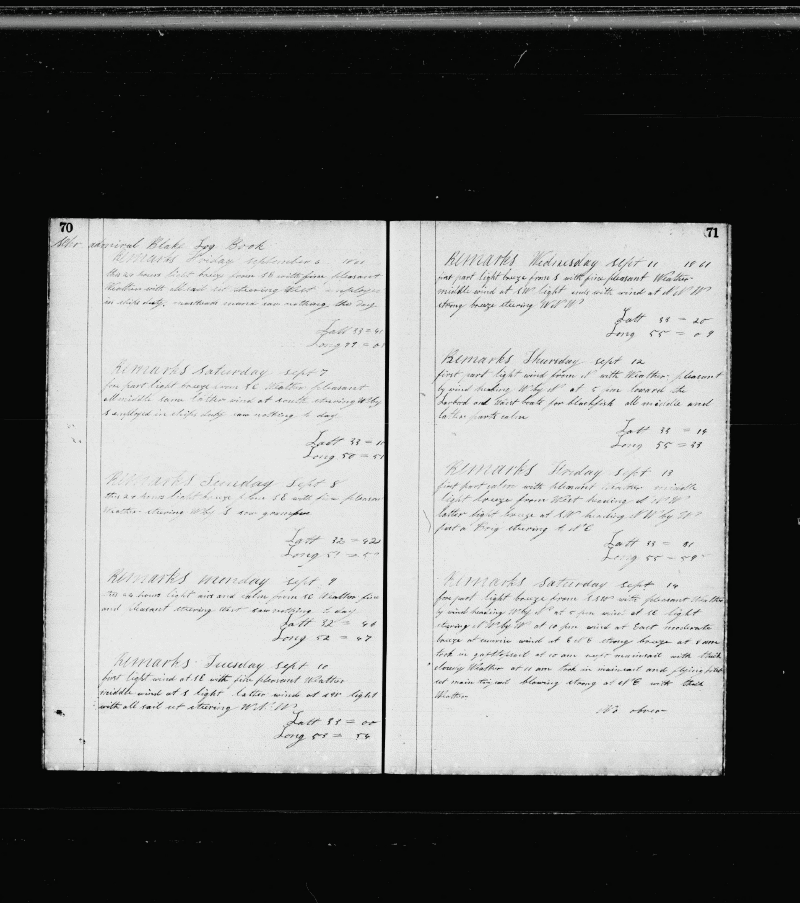 70
Schr admiral Blake Log Book
Remarks Friday September 6 18
this 24 hours light breeze from SE with fine pleasant
Weather with all sail set steering West employed
in ships duty mastheads saw nothing this day
Latt 33 = 4
Long
Remarks Saturday Sept 7
first part light breeze from SE Weather pleasant
all middle same latter wind at South steering W by
S employed in ships duty saw nothing to day
Latt 33 =
Long 50 = 5
Remarks Sunday Sept 8
this 24 hours light breeze from SE with fine pleasan
Weather steering W by S saw grampus
Latt 32 = 42
Long 51 =
Remarks Munday Sept 9
this 24 hours light airs and calm from SE Weather fine
and pleasant steering West saw nothing to day
Latt 32 = 46
Long 52 = 47
Remarks Tuesday Sept 10
first light wind at SE with fine pleasant Weather
middle wind at S light latter wind at SSW light
with all sail set steering W N W
Latt 33 = 00
Long 53 = 54
71
Remarks Wednesday Sept 11 1861
first part light breeze from S with fine pleasant Weather
middle wind at SW light ends with wind at N N W
strong breeze steering W N W
Latt 33 = 20
Long 55 = 09
Remarks Thursday Sept 12
first part light wind from N with Weather pleasant
by wind heading W by N at 5 pm lowered the
larbord and waist boats for blackfish all middle and
latter parts calm
Latt 33 = 14
Long 55 = 33
Remarks Friday Sept 13
first part calm with pleasant Weather middle
light breeze from West heading N N W
latter light breeze at SW heading N W by W
part steering N E
Latt 33 = 31
Long 55 = 59
Remarks Saturday Sept 14
first part light breeze from SSW with pleasant Weather
by wind heading W by N at 5 pm wind at SE light
steering N W by W at 10 pm wind at East moderate
breeze at sunrise wind at E N E strong breeze at 8 am
took in gafftopsail at 10 am reeft mainsail with thick
Weather at 11 am took in mainsail and flying
set main trysail blowing strong at N E with thick
Weather
No obser